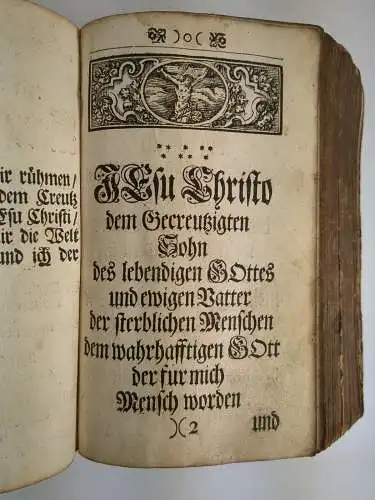 ir rühmen/
dem Creutz
Esu Christi/
ir die Welt
und ich der
JEsu Christo
dem Gecreutzigten
Sohn
des lebendigen GOttes
und ewigen Vatter
der sterblichen Menschen
dem wahrhafftigen GOtt
der fur mich
Mensch worden
)( 2 und